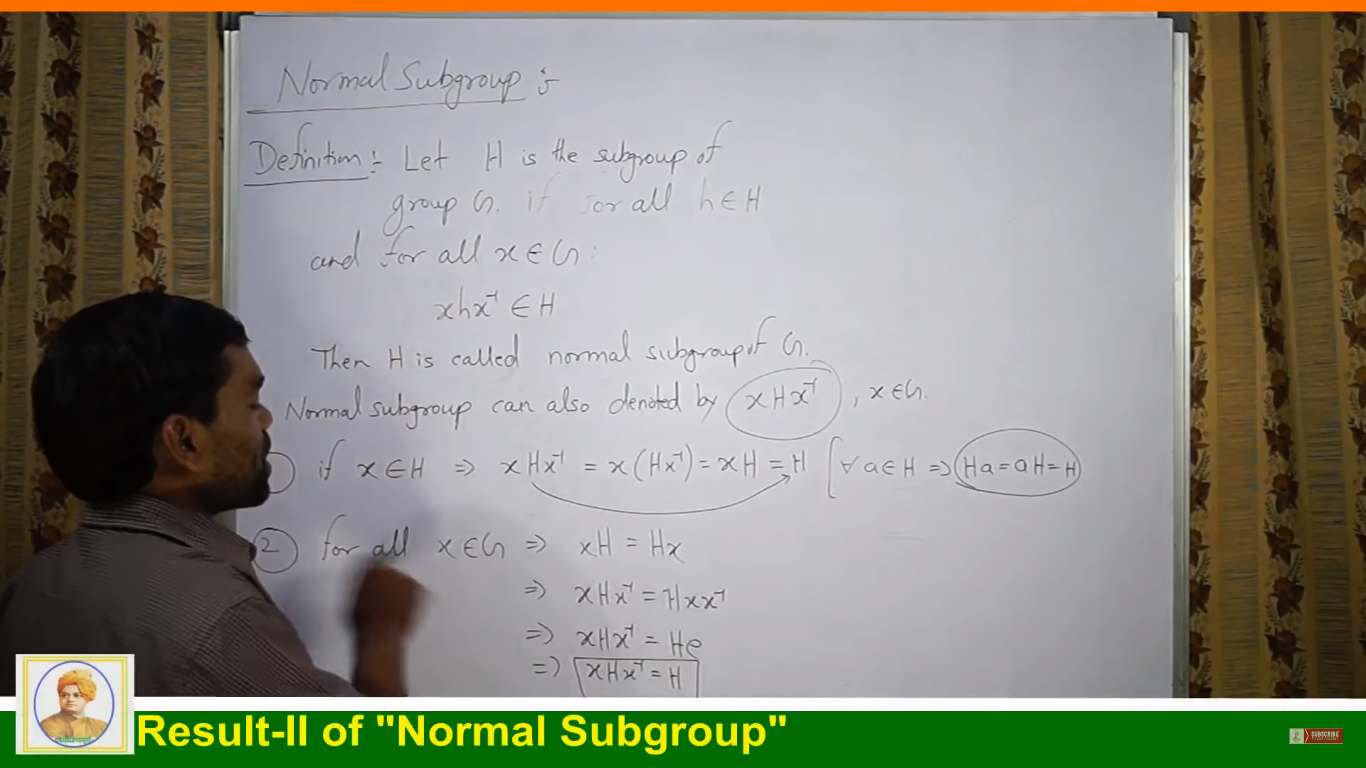 Normal Subgroup :-
Definition :- Let H is the subgroup of
group G. if for all h ∈ H
and for all x ∈ G :
xhx⁻¹ ∈ H
Then H is called normal subgroup of G.
Normal subgroup can also denoted by xHx⁻¹, x ∈ G.
if x ∈ H ⇒ xHx⁻¹ = x(Hx⁻¹) = xH = H [∀ a ∈ H ⇒ Ha = aH = H
2 for all x ∈ G ⇒ xH = Hx
⇒ xHx⁻¹ = Hxx⁻¹
⇒ xHx⁻¹ = He
⇒ xHx⁻¹ = H
Result-II of "Normal Subgroup"
SUBSCRIBE